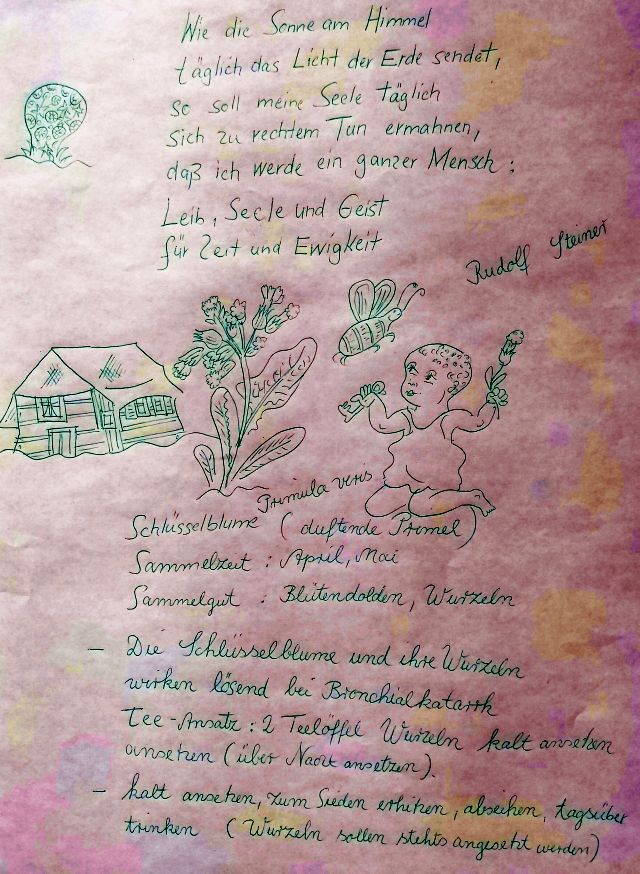 Wie die Sonne am Himmel
täglich das Licht der Erde sendet,
so soll meine Seele täglich
sich zu rechtem Tun ermahnen,
daß ich werde ein ganzer Mensch:
Leib, Seele und Geist
für Zeit und Ewigkeit
Rudolf Steiner
Primula veris
Schlüsselblume (duftende Primel)
Sammelzeit : April, Mai
Sammelgut : Blütendolden, Wurzeln
- Die Schlüsselblume und ihre Wurzeln
wirken lösend bei Bronchialkatarrh
Tee-Ansatz : 2 Teelöffel Wurzeln kalt ansetzen
ansetzen (über Nacht ansetzen).
- kalt ansetzen, zum Sieden erhitzen, abseihen, tagsüber
trinken (Wurzeln sollen stehts angesetzt werden)